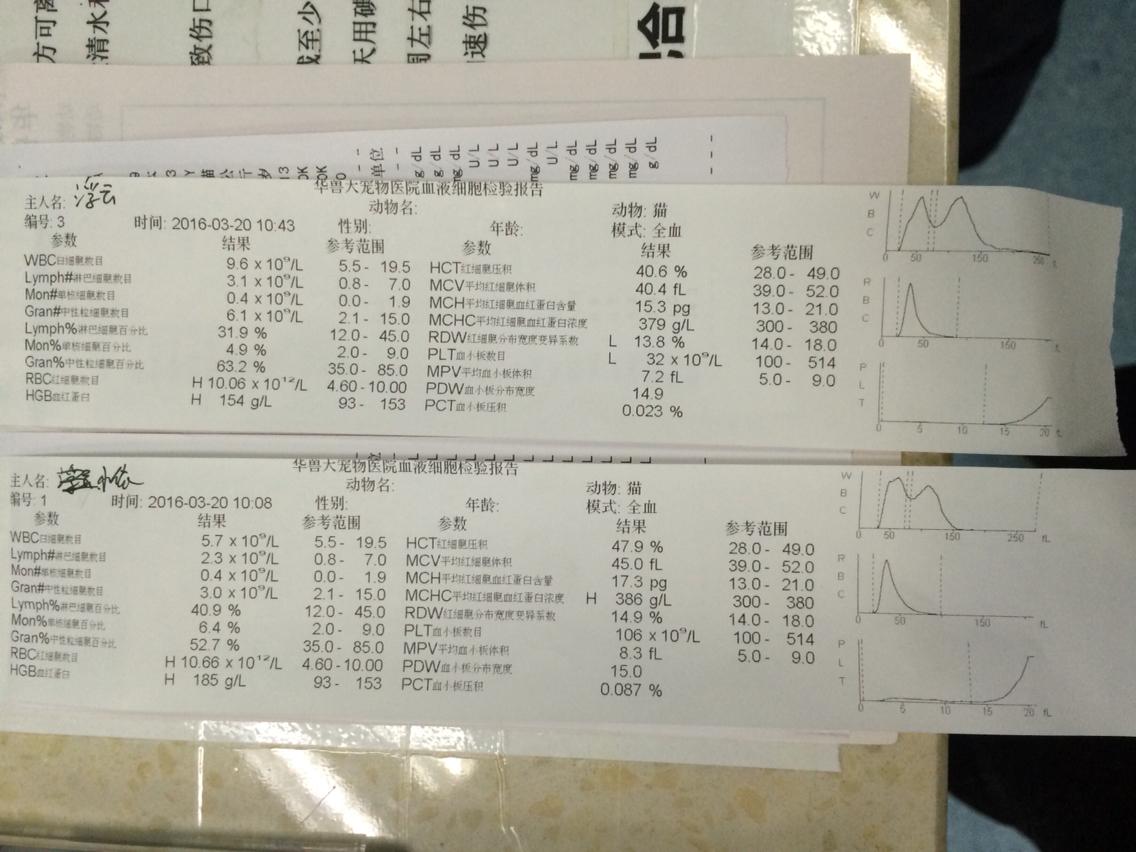 方可离
清水和
致伤口
或至少
天用碘
周左右
速伤
合
单位
g/dL
g/dL
mg/dL
U/L
U/L
U/L
mg/dL
U/L
mg/dL
mg/dL
mg/dL
mg/dL
g/dL
华兽大宠物医院血液细胞检验报告
主人名: 浮云 动物名: 动物: 猫
编号: 3 时间: 2016-03-20 10:43 性别: 年龄: 模式: 全血
参数 结果 参考范围 参数 结果 参考范围
WBC白细胞数目 9.6 x 10⁹/L 5.5 - 19.5 HCT红细胞压积 40.6 % 28.0 - 49.0
Lymph#淋巴细胞数目 3.1 x 10⁹/L 0.8 - 7.0 MCV平均红细胞体积 40.4 fL 39.0 - 52.0
Mon#单核细胞数目 0.4 x 10⁹/L 0.0 - 1.9 MCH平均红细胞血红蛋白含量 15.3 pg 13.0 - 21.0
Gran#中性粒细胞数目 6.1 x 10⁹/L 2.1 - 15.0 MCHC平均红细胞血红蛋白浓度 379 g/L 300 - 380
Lymph%淋巴细胞百分比 31.9 % 12.0 - 45.0 RDW红细胞分布宽度变异系数 L 13.8 % 14.0 - 18.0
Mon%单核细胞百分比 4.9 % 2.0 - 9.0 PLT血小板数目 L 32 x 10⁹/L 100 - 514
Gran%中性粒细胞百分比 63.2 % 35.0 - 85.0 MPV平均血小板体积 7.2 fL 5.0 - 9.0
RBC红细胞数目 H 10.06 x 10¹²/L 4.60 - 10.00 PDW血小板分布宽度 14.9
HGB血红蛋白 H 154 g/L 93 - 153 PCT血小板压积 0.023 %
WBC
0 50 150 250 fL
RBC
0 50 150 fL
PLT
0 5 10 15 20 fL
华兽大宠物医院血液细胞检验报告
主人名: 动物名: 动物: 猫
编号: 1 时间: 2016-03-20 10:08 性别: 年龄: 模式: 全血
参数 结果 参考范围 参数 结果 参考范围
WBC白细胞数目 5.7 x 10⁹/L 5.5 - 19.5 HCT红细胞压积 47.9 % 28.0 - 49.0
Lymph#淋巴细胞数目 2.3 x 10⁹/L 0.8 - 7.0 MCV平均红细胞体积 45.0 fL 39.0 - 52.0
Mon#单核细胞数目 0.4 x 10⁹/L 0.0 - 1.9 MCH平均红细胞血红蛋白含量 17.3 pg 13.0 - 21.0
Gran#中性粒细胞数目 3.0 x 10⁹/L 2.1 - 15.0 MCHC平均红细胞血红蛋白浓度 H 386 g/L 300 - 380
Lymph%淋巴细胞百分比 40.9 % 12.0 - 45.0 RDW红细胞分布宽度变异系数 14.9 % 14.0 - 18.0
Mon%单核细胞百分比 6.4 % 2.0 - 9.0 PLT血小板数目 106 x 10⁹/L 100 - 514
Gran%中性粒细胞百分比 52.7 % 35.0 - 85.0 MPV平均血小板体积 8.3 fL 5.0 - 9.0
RBC红细胞数目 H 10.66 x 10¹²/L 4.60 - 10.00 PDW血小板分布宽度 15.0
HGB血红蛋白 H 185 g/L 93 - 153 PCT血小板压积 0.087 %
WBC
0 50 150 250 fL
RBC
0 50 150 fL
PLT
0 5 10 15 20 fL